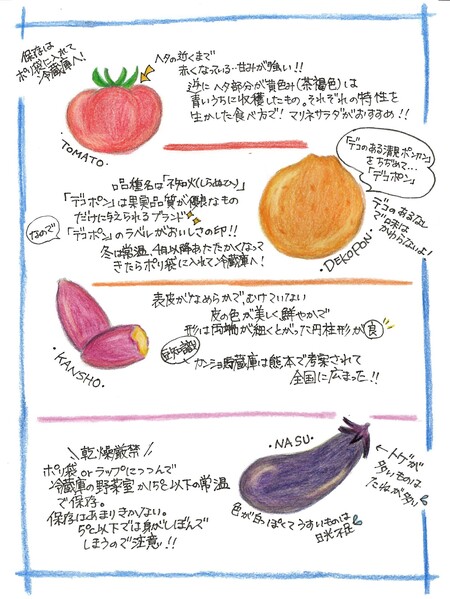 保存は
ポリ袋に入れて
冷蔵庫へ!
ヘタの近くまで
赤くなっている…甘みが強い!!
逆にヘタ部分が黄色み(茶褐色)は
青いうちに収穫したもの。それぞれの特性を
生かした食べ方で!マリネサラダがおすすめ!!
・TOMATO・
「デコのある清見ポンカン」
をちぢめて…
「デコポン」
品種名は「不知火(しらぬひ)」
「デコポン」は果実品質が優良なもの
だけに与えられるブランド
なので
「デコポン」のラベルがおいしさの印!!
冬は常温、4月以降あたたかくなって
きたらポリ袋に入れて冷蔵庫へ!
デコのあるなし
で味は
かわらないよ!
・DEKOPON・
表皮がなめらかで、むけていない
皮の色が美しく鮮やかで
形は両端が細くとがった円柱形が良
・KANSHO・
豆知識
カンショ貯蔵庫は熊本で考案されて
全国に広まった!!
\乾燥厳禁/
ポリ袋orラップにつつんで
冷蔵庫の野菜室か15℃以下の常温
で保存。
保存はあまりきかない。
5℃以下では身がしぼんで
しまうので注意!!
・NASU・
←トゲが
多いものは
たねが多い
色が白っぽくてうすいものは
日光不足